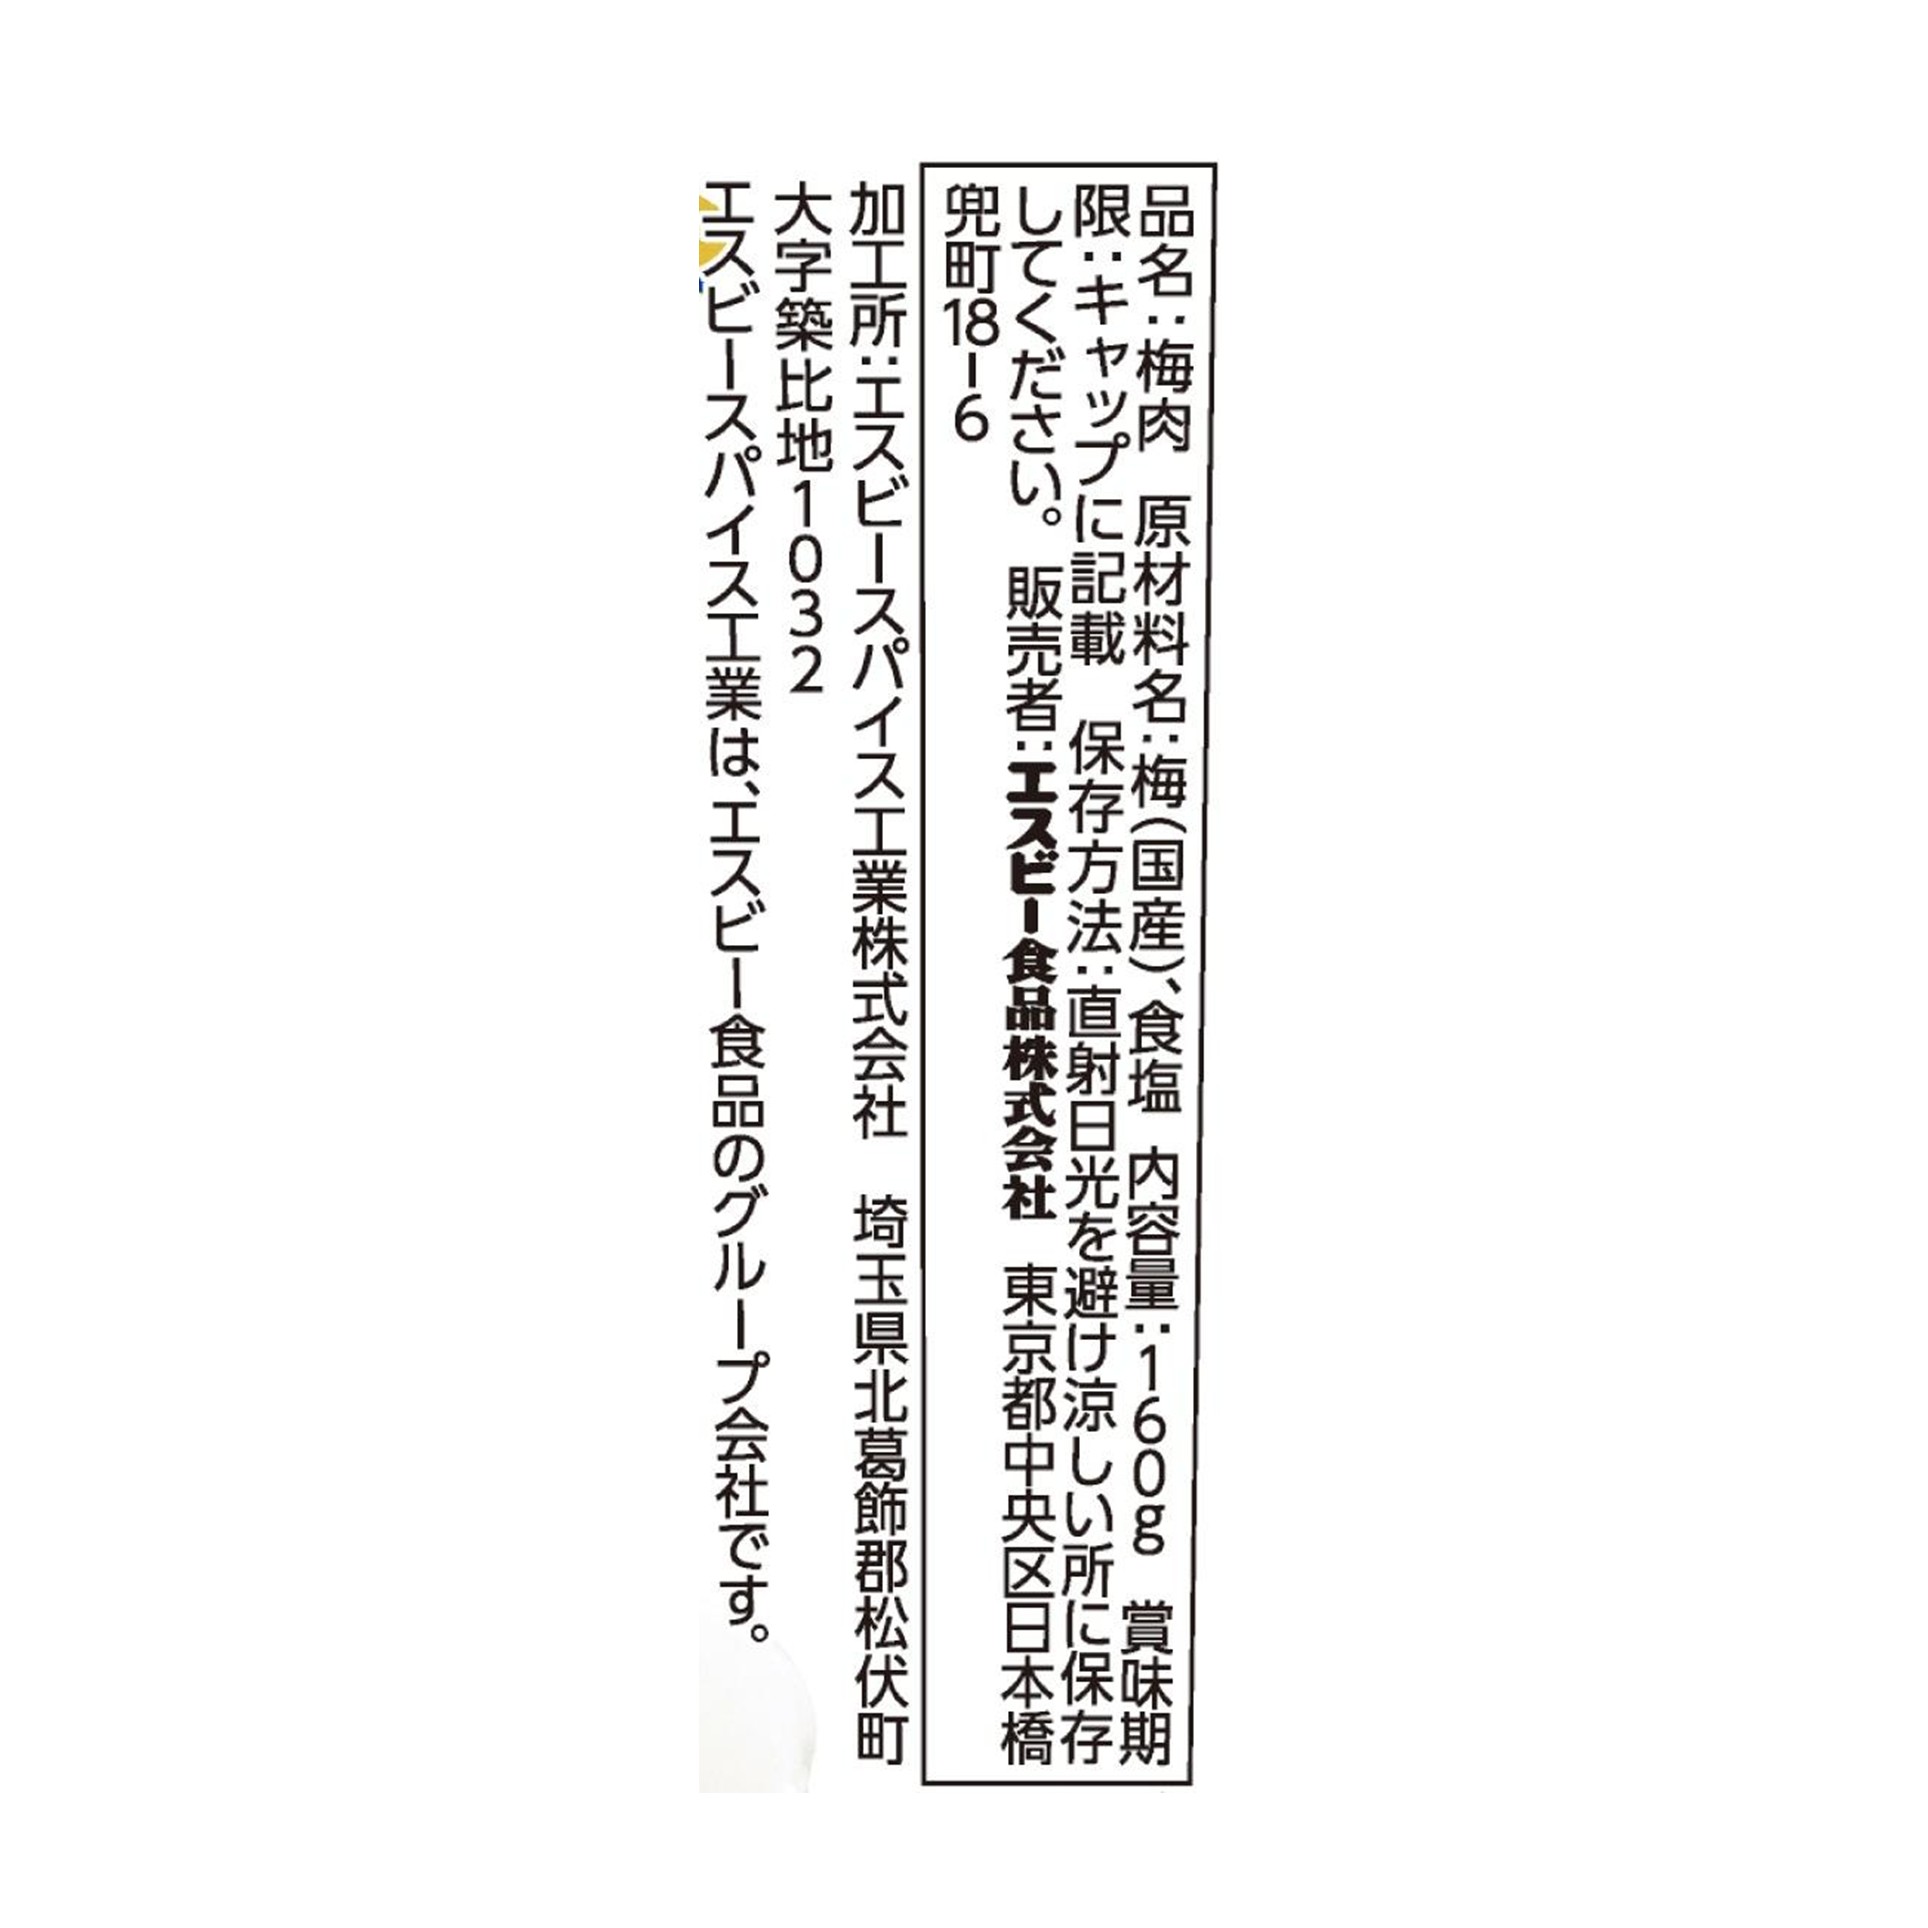 品名：梅肉　原材料名：梅（国産）、食塩　内容量：160g　賞味期
限：キャップに記載　保存方法：直射日光を避け涼しい所に保存
してください。　販売者：エスビー食品株式会社　東京都中央区日本橋
兜町18-6
加工所：エスビースパイス工業株式会社　埼玉県北葛飾郡松伏町
大字築比地1032
エスビースパイス工業は、エスビー食品のグループ会社です。